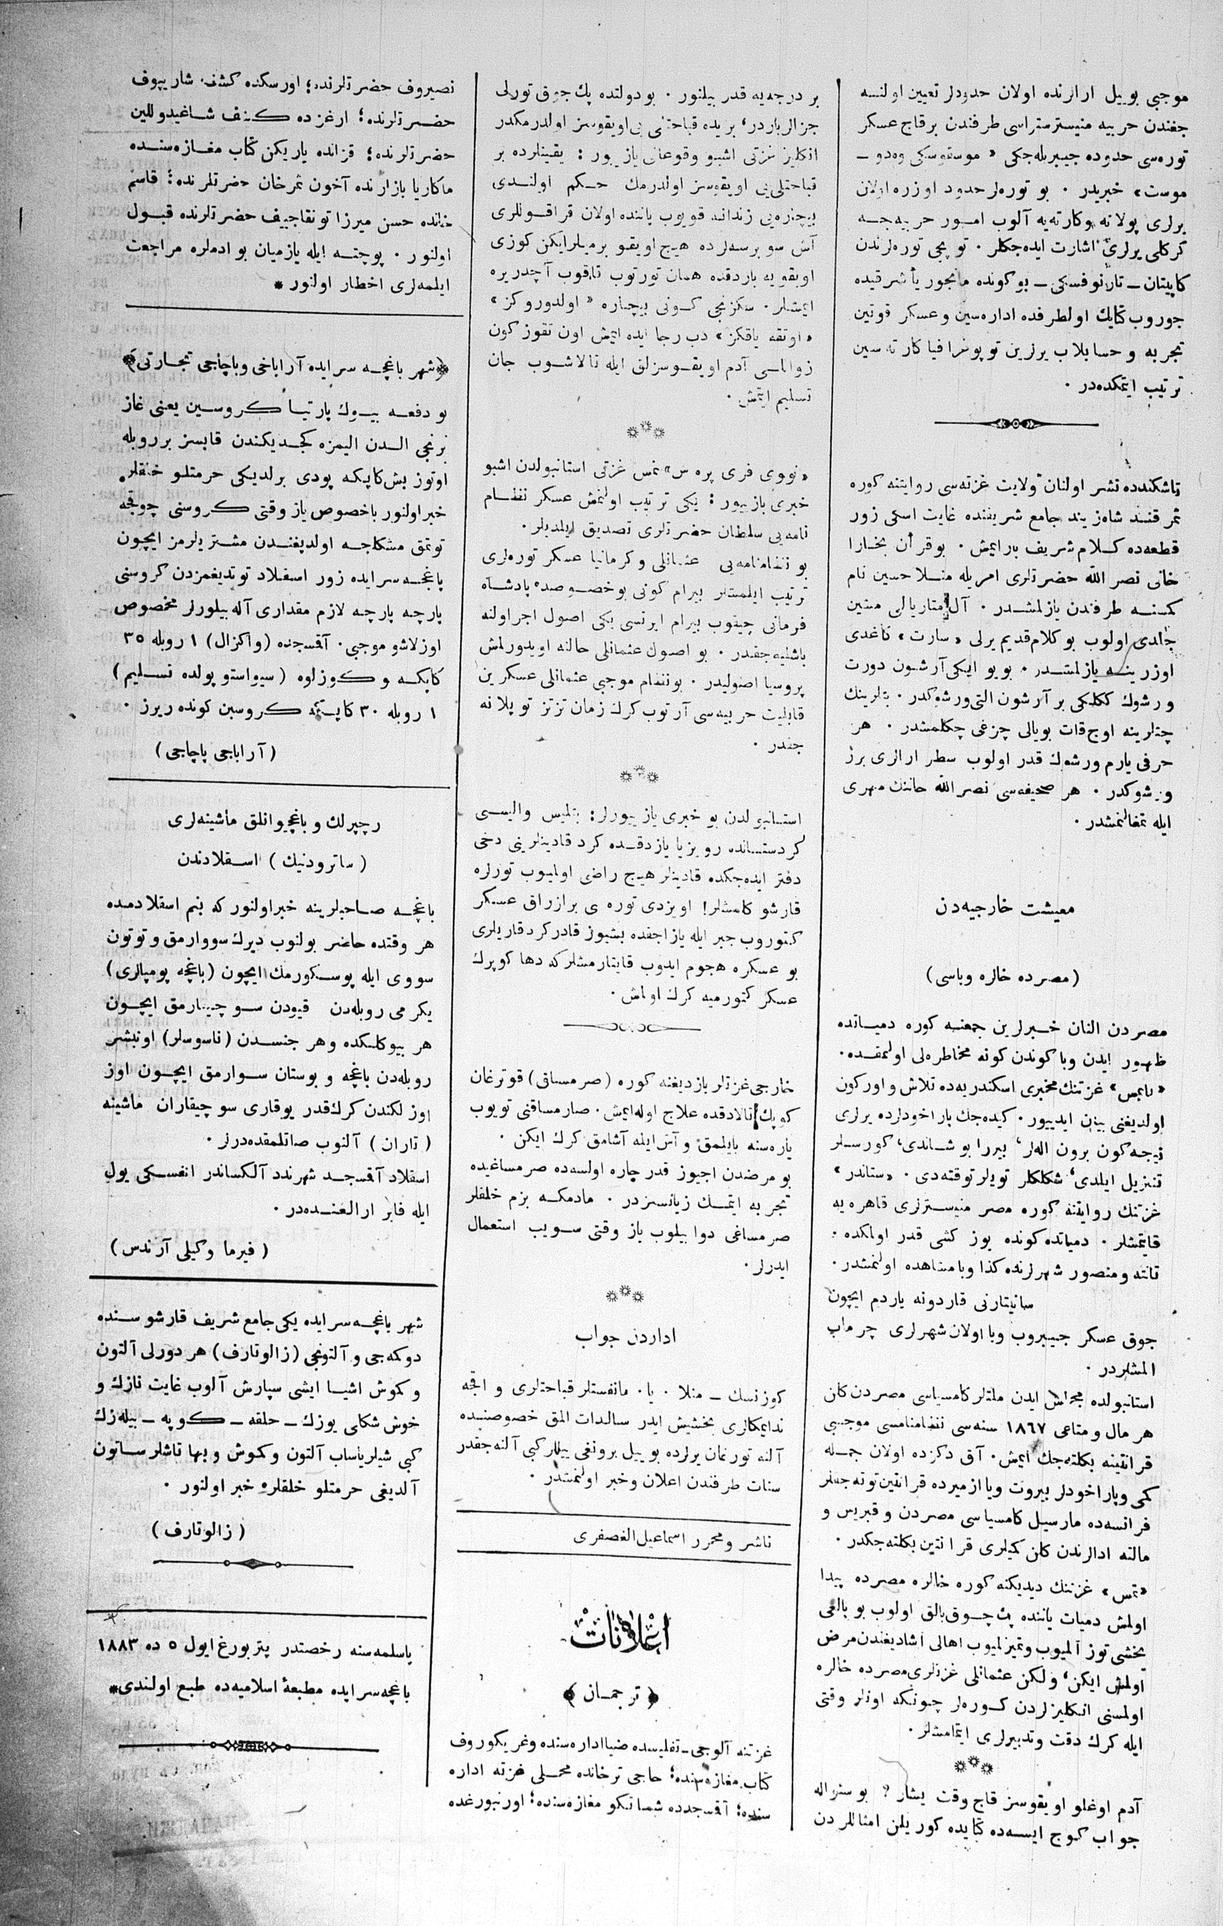 موجبی بو ییل ارالرنده اولان حدودلر تعیین اولنه
جغندن حربیه منیسترستراسی طرفندن برقاچ عسكر
توره‌سی حدوده جیبریله‌جكی « موسقوسكی وه‌دو ـ
موست » خبریدر . بو توره‌لر حدود اوزره اولان
یرلری پولانه وكارته‌یه آلوب امور حربیه‌جه
كركلی یرلری اشارت ایده‌جكلر . توپجی توره‌لرندن
كاپیتان ـ تارنوفسكی ـ بو كونده مانجور یا شرقیده
جوروب كتابك اولطرفده اداره‌سین و عسكر قوتین
تجربه و حسابلاب یرلرین توپوغرافیا كارته‌سین
ترتیب ایتمكده‌در .
تاشكندده نشر اولنان ولایت غزته‌سی روایتنه كوره
ثمرقند شاه‌زیند جامع شریفنده غایت اسكی زور
قطعه‌ده كلام شریف بار ایمش . بو قرأن بخارا
خانی نصر الله حضرتلری امریله منلا حسین نام
كمسنه طرفندن یازلمشدر . آل مقتاریالی متین
جلدی اولوب بو كلام قدیم یرلی « سارت » كاغدی
اوزرینه یازلمشدر . بویو ایكی آرشون دورت
ورشوك كنكلكی بر آرشون التی ورشوكدر . بتلرینك
چتلرینه اوج قات بویالی چزغی چكلمشدر . هر
حرفی یارم ورشوك قدر اولوب سطر ارالری برر
ورشوكدر . هر صحیفه‌سی نصر الله خاننك مهری
ایله تمغالنمشدر .
معیشت خارجیه‌دن
(مصرده خالره وباسی)
مصردن النان خبرلرین جمعنه كوره دمیاتده
ظهور ایدن وبا كوندن كونه مخاطره‌لی اولمقده .
« تایمس » غزتنك مخبری اسكندریه‌ده تلاش و اوركون
اولدیغنی بیان ایدیور . كیده‌جك پاراخودلرده یرلری
نیجه كون برون الدلر
تنزیل ایلدی . « ستاندر »
غزتنك روایتنه كوره مصر منیسترلری قاهره‌یه
قایتمشلر . دمیاتده كونده یوز كشی قدر اولمكده .
تانته و منصور شهرلرنده كذا وبا مشاهده اولنمشدر .
سانیتارنی قاردونه یاردم ایچون
جوق عسكر جیبروب وبا اولان شهرلری چرماب
المشلردر .
استانبولده مجلس ایدن ملتلر كامسیاسی مصردن كلن
هر مال و متاعی ١٨٦٧ سنه‌سی نظامنامسی موجبی
قرانتینه بكلته‌جك ایمش . آق دكزده اولان جمله
كمی و پاراخودلر بیروت ویا ازمیرده قرانتین توته‌جكلر
فرانسه‌ده مارسیل كامسیاسی مصردن و قبریس و
مالته ادالرندن كلن كمیلری قرانتین بكلته‌جكدر .
« تمس » غزتنك دیدیكنه كوره خالره مصرده پیدا
اولمش دمیات یاننده پك چوق بالق اولوب بو بالغی
یخشی توز المیوب و تمیزلمیوب اهالی اشادیغندن مرض
اولمش ایكن و لكن عثمانلی غزتلری مصرده خالره
اولمسنی انكلیزلردن كوره‌لر چونكه اونلر وقتی
ایله كرك دقت و تدبیرلری ایتمامشلر .
آدم اوغلو اویقوسز قاچ وقت یشار ? بو سئواله
جواب كوج ایسه‌ده كتابده كوریلن امثاللردن
بر درجه‌یه قدر بیلنور . بو دولتده پك جوق تورلی
جزالر باردر بریده قباحتلی یی اویقوسز اولدرمكدر
انكلیز غزتی اشبو وقوعاتی یازیور : یقینلرده بر
قباحتلی یی اویقوسز اولدرمك حكم اولندی
بیچاره‌یی زندانه قویوب یاننده اولان قراقوللری
آش سو برسه‌لرده هیچ اویقو برمیلر ایكن كوزی
اویقویه باردقده همان تورتوب قاقوب آچدریره
ایمشلر . سكزنجی كونی بیچاره « اولدوروكز »
« اوتقه یاقكز » دب رجا ایده ایمش اون تقوز كون
زوالسی آدم اویقوسزلق ایله تالاشوب جان
تسلیم ایتمش .
« نووی فری پره س » نمس غزتی استانبولدن اشبو
خبری یازیور : یكی ترتیب اولنمش عسكر نظام
نامه‌یی سلطان حضرتلری تصدیق ایلدیلر .
بو نظامنامه‌یی عثمانلی و كرمانیا عسكر توره‌لری
ترتیب ایلمشلر بیرام كونی بو خصوصده پادشاه
فرمانی چیقوب بیرام ایرتسی یكی اصول اجراولنه
باشلیه‌جقدر . بو اصول عثمانلی حالنه اویدورلمش
پروسیا اصولیدر . بو نظام موجبی عثمانلی عسكرین
قابلیت حربیه‌سی آرتوب كرك زمان تزتز توپلانه
جقدر .
استانبولدن بو خبری یازیورلر : بتلیس والیسی
كردستانده رویزیا یازدقده كرد قادینلرینی دخی
دفتر ایده‌جكده قادینلر هیچ راضی اولمیوب تورلره
قارشو كلمشلر! اویزدی توره ی برازراق عسكر
كتوروب جبر ایله یازاجقده بشیوز قادر كرد قاریلری
بو عسكره هجوم ایدوب قایتارمشلر كه دها كوپرك
عسكر كتورمیه كرك اولمش .
خارجی غزتلر یازدیغنه كوره (صرمساق) قوترغان
كوپك تالادقده علاج اوله ایمش . صارمساقنی تویوب
یاره‌سنه یایلمق و آش ایله آشامق كرك ایكن .
بو مرضدن اجیوز قدر چاره اولسه‌ده صرمساغیده
تجربه ایتمك زیانسزدر . مادمكه بزم خلقلر
صرمساغی دوا بیلوب یاز وقتی سویب استعمال
ایدرلر .
اداردن جواب
كوزنسك ـ منلا . یا . مانفستلر قباحتلری و اقچه
ندایمكلری بخشیش ایدر سالدات المق خصوصنده
آلنه تورغان یرلرده بو ییل برونغی ییللر كبی آلنه‌جقدر
سنات طرفندن اعلان و خبر اولنمشدر .
ناشر و محرر اسماعیل الغصفری
اعلانات
﴿ ترجمان ﴾
غزتنه آلوجی ـ تفلیسده ضیا اداره‌سنده و غریكوروف
كتاب مغازه‌سنده ؛ حاجی ترخانده محملی غزته اداره
سنده ؛ آقسجدده شمانكو مغازه‌سنده ؛ اورنبورغده
نصیروف حضرتلرنده ؛ اورسكده كشف شاریپوف
حضرتلرنده ؛ ارغزده كشف شاغیدوللین
حضرتلرنده ؛ قزانده یاریكن كتاب مغازه‌سنده
ماكاریا بازارنده آخون ثمرخان حضرتلرنده ؛ قاسم
خانده حسن میرزا تونقاجیف حضرتلرنده قبول
اولنور . پوچته ایله یازمیان بو ادملره مراجعت
ایلمه‌لری اخطار اولنور *
﴿ شهر باغچه سرایده آراباخی و باچاجی تجارتی ﴾
بو دفعه بیوك پارتیا كروسین یعنی غاز
برنجی الدن الیمزه كجدیكندن قابسز بر روبله
اوتوز بش كاپكه پودی برلدیكی حرمتلو خلقلره
خبر اولنور باخصوص یاز وقتی كروسنی چوقجه
توتمق مشكلجه اولدیغندن مشتریلرمز ایچون
باغچه سرایده زور اسقلاد توتدیغمزدن كروسنی
پارچه پارچه لازم مقداری آله بیلورلر مخصوص
اوزلاشو موجبی . آقسجده (واكزال) ١ روبله ٣٥
كاپكه و كوزلوه (سیواستوپولده تسلیم)
١ روبله ٣٠ كاپكه كروسین كونده ریرز .
(آراباجی پاچاجی)
رچپرلك و باغچیوانلق ماشینه‌لری
(ساترودنیك) اسقلادندن
باغچه صاحبلرینه خبر اولنور كه بنم اسقلادمده
هر وقتده حاضر بولنوب دیرك سووارمق و توتون
سووی ایله پوسكورمك ایچون (باغچه پومپالری)
یكرمی روبله‌دن قیودن سو چیقارمق ایچون
هر بیوكلكده وهر جنسدن (ناسوسلر) اونبشر
روبله‌دن باغچه و بوستان سوارمق ایچون اوز
اوزلكندن كرك قدر یوقاری سو چیقاران ماشینه
(تاران) آلنوب صاتلمقده‌درلر .
اسقلاد آقسجد شهرندد آلكساندر انفسكی یول
ایله فابر ارالغنده‌در .
(فیرما وكیلی آرندس)
شهر باغچه سرایده یكی جامع شریف قارشوسنده
دوكمه‌جی و آلتونجی (زالوتارف) هر دورلی آلتون
و كموش اشیا ایشی سپارش آلوب غایت نازك و
خوش شكلی یوزك ـ حلقه ـ كوپه ـ بیله‌زك
كبی شیلر یاساب آلتون و كموش و بها تاشلر ساتون
آلدیغی حرمتلو خلقلره خبر اولنور .
(زالوتارف)
باسلمه‌سنه رخصتدر پتربورغ ایول ٥ ده ١٨٨٣
باغچه سرایده مطبعهٔ اسلامیه‌ده طبع اولندی *